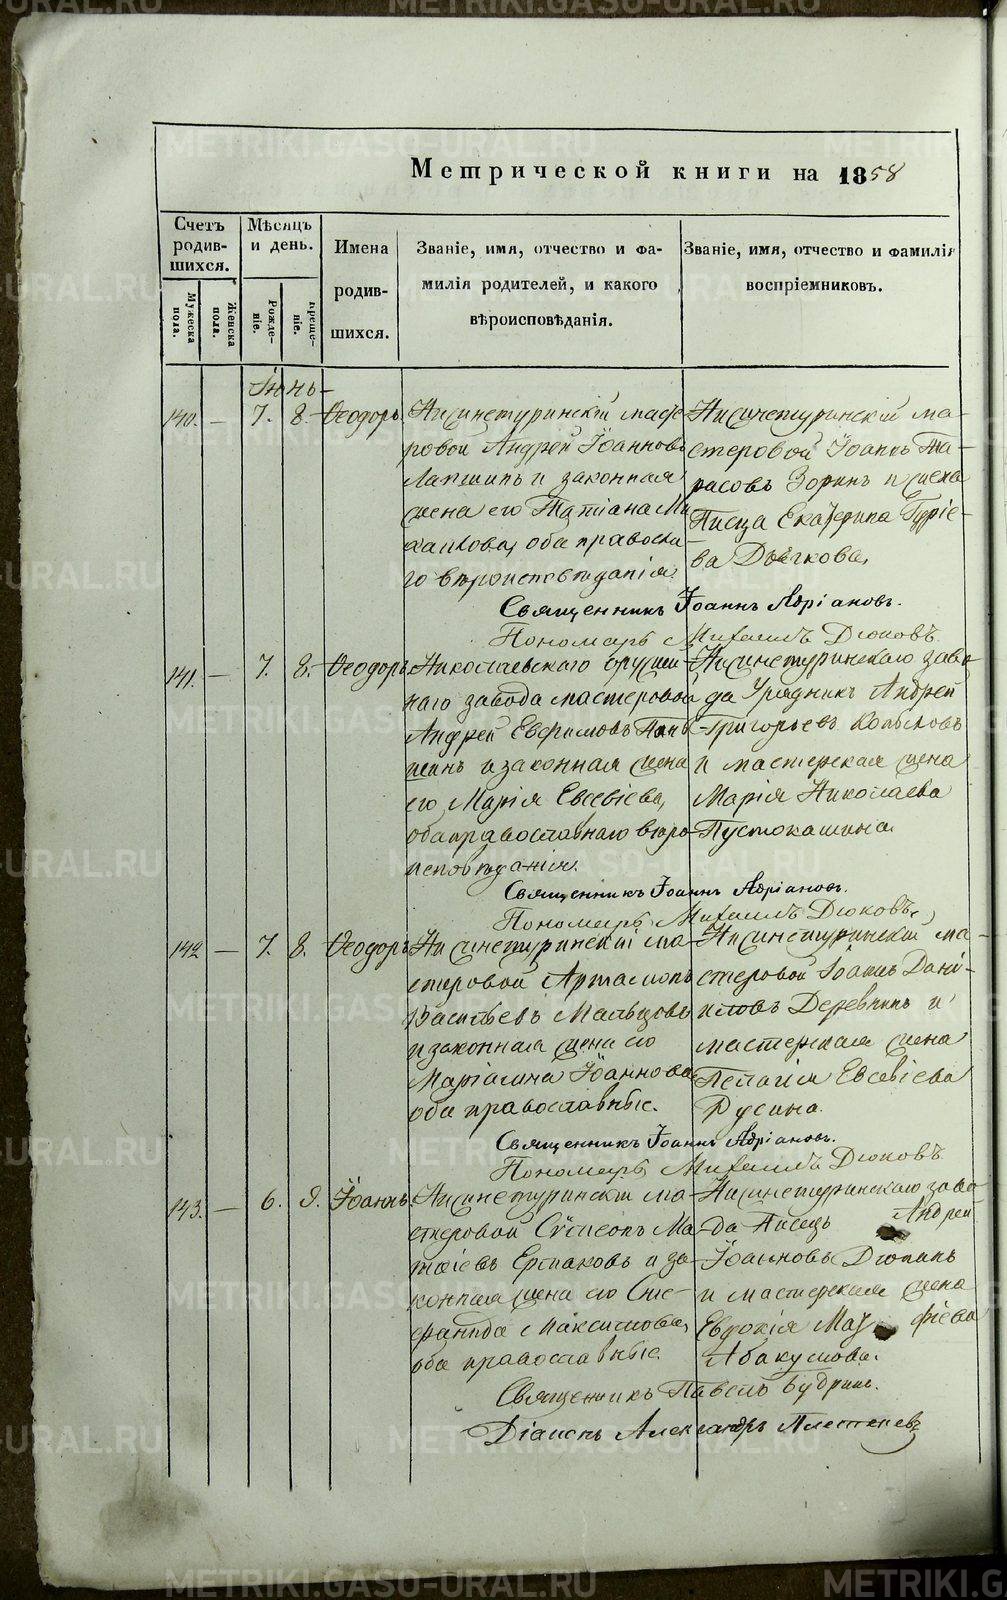 Метрической книги на 1858
Счетъ родив- шихся.
Мѣсяцъ и день.
Имена родив- шихся.
Званіе, имя, отчество и фа-
милія родителей, и какого
вѣроисповѣданія.
Званіе, имя, отчество и фамилія
воспріемниковъ.
Мужеска пола.
Женска пола.
Рожде- ніе.
креще- ніе.
Іюнь
140. — 7. 8. Ѳеодоръ.
Нижнетуринскій масте-
ровой Андрей Іоанновъ
Лапшинъ и законная
жена его Татіана Ми
хаилова, оба православна-
го вѣроисповѣданія.
Нижнетуринскій ма-
стеровой Іоаннъ Та-
расовъ Зоринъ и жена
Писца Екатерина Гуріе-
ва Дьячкова.
Священникъ Іоаннъ Адріановъ.
Пономарь Михаилъ Дюковъ
141. — 7. 8. Ѳеодоръ
Николаевскаго оружей
наго завода мастеровой
Андрей Евфимовъ
шинъ и законная жена
его Марія Евсевіева,
оба православнаго вѣро-
исповѣданія.
Нижнетуринскаго заво-
да Урядникъ Андрей
Григорьевъ Копыловъ
и мастерская жена
Марія Николаева
Пустокашина.
Священникъ Іоаннъ Адріановъ.
Пономарь Михаилъ Дюковъ
142 — 7. 8. Ѳеодоръ
Нижнетуринскій ма-
стеровой Артамонъ
Васильевъ Мальцовъ
и законная жена его
Маріамна Іоаннова
оба православные.
Нижнетуринскій ма-
стеровой Іоаннъ Дані-
иловъ Деревнинъ и
мастерская жена
Пелагія Евсевіева
Русина.
Священникъ Іоаннъ Адріановъ.
Пономарь Михаилъ Дюковъ
143. — 6. 9. Іоаннъ.
Нижнетуринскій ма-
стеровой Сѵмеонъ Ма-
тѳіевъ Ермаковъ и за-
конная жена его Сте-
фанида Максимова,
оба православные.
Нижнетуринскаго заво-
да Писецъ Андрей
Іоанновъ Дюпинъ
и мастерская жена
Евдокія Матфіева
Абакумова.
Священникъ Павелъ Будринъ.
Діаконъ Александръ Плетеневъ
METRIKI.GASO-URAL.RU